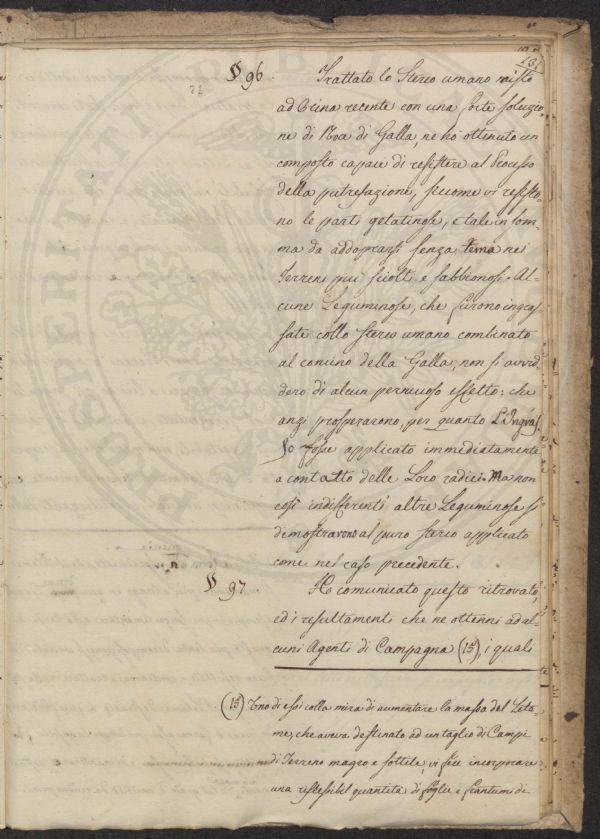 § 96. Trattato lo Sterco umano misto
ad Orina recente con una forte soluzio-
ne di Noce di Galla, ne ho ottenuto un
composto capace di resistere al Processo
della putrefazione, siccome vi resisto-
no le parti gelatinose, e tale in som-
ma da addoprarsi senza tema ne
Terreni piu sciolti e sabbionosi. Al-
cune Leguminose, che furono ingras
sate collo sterco umano combinato
al concino della Galla, non si avvid-
dero di alcun pernicioso effetto; che
anzi prosperarono, per quanto L'Ingras
so fosse applicato immediatamente
a contatto delle Loro radici. Ma non
cosi indifferenti altre Leguminose si
demostravono al puro sterco applicato
come nel caso precedente.
§ 97. Ho comunicato questo ritrovato,
ed i resultamenti che ne ottenni ad al-
cuni Agenti di Campagna (15), i quali
(15) Uno di essi colla mira di aumentare la massa del Leta-
me, che aveva destinato ad un taglio di Campi
di Terreno magro e sottile, vi fece incorporare
una riflessibil quantità di foglie e frantumi di
PROSPERITATI PUBLICAE